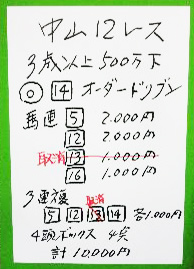 中山12レース
3歳以上500万下
◎ 14 オーダードリブン
馬連 5 2.000円
12 2.000円
取消 13 1.000円
16 1.000円
取消
3連複 5 12 13 14 各1.000円
4頭ボックス 4点
計10,000円